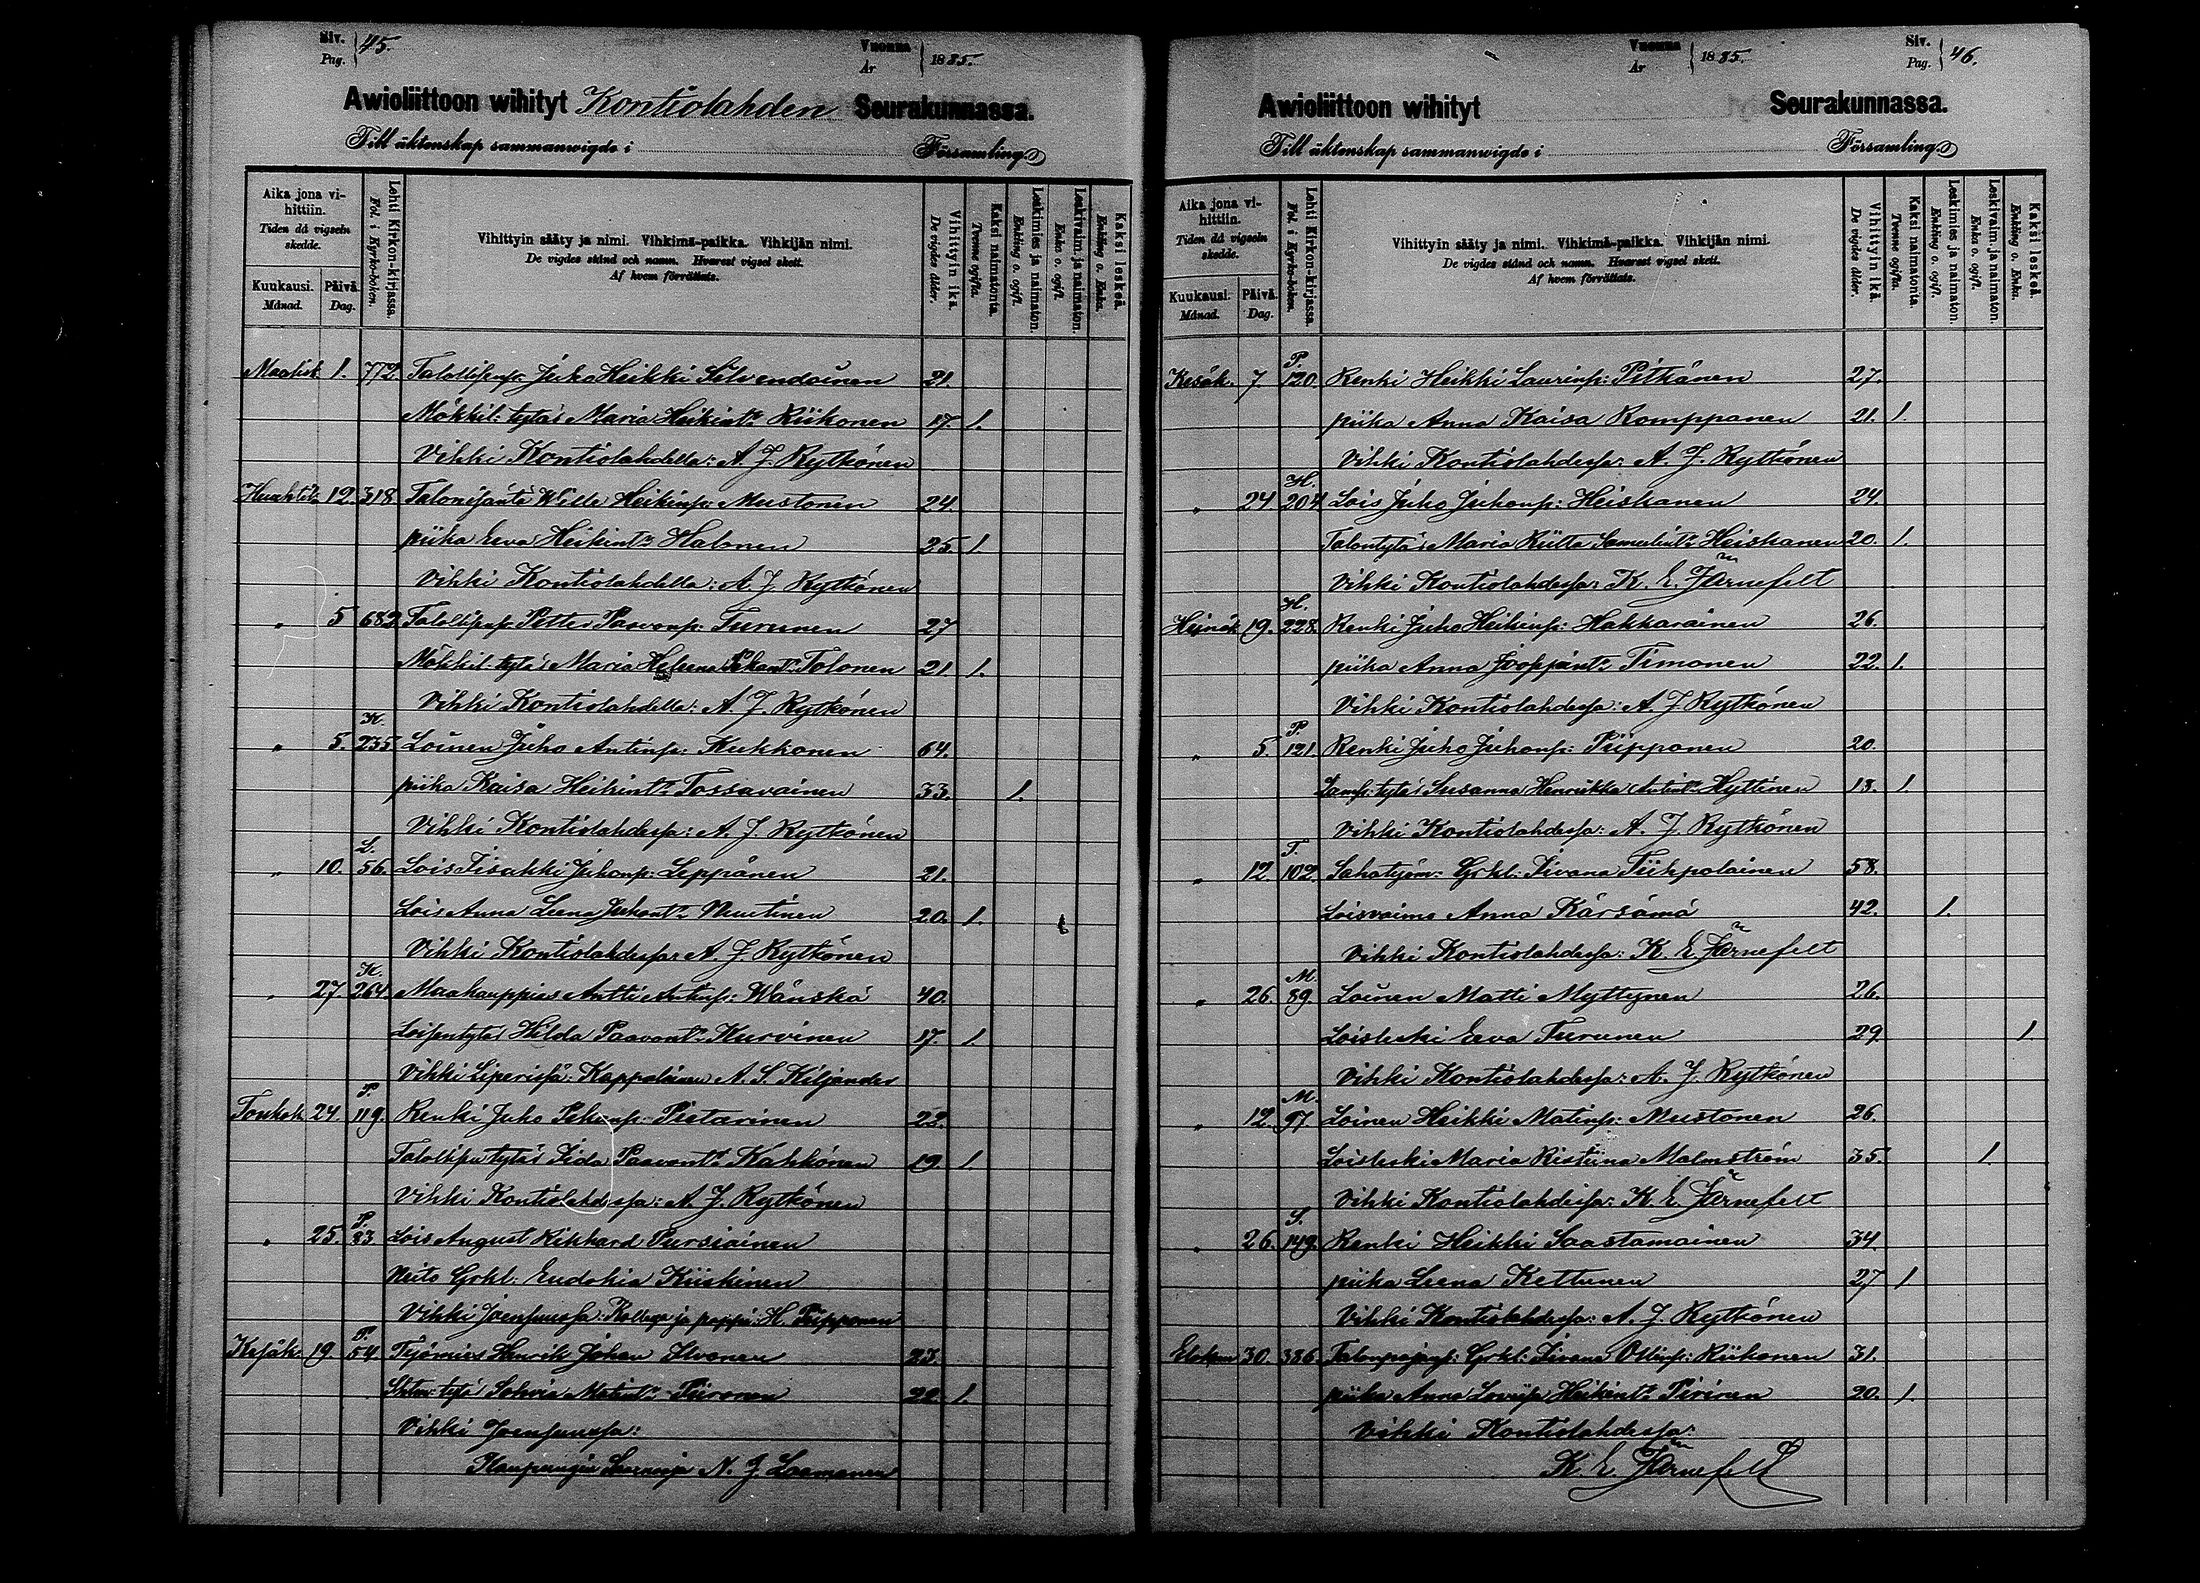 Siv. Pag. 45.
Vuonna År 1885.
Awioliittoon wihityt Kontiolahden Seurakunnassa.
Till äktenskap sammanwigde i Församling.
Aika jona vihittiin. Tiden då vigseln skedde.
Kuukausi. Månad.
Päivä. Dag.
Lehti Kirkon-kirjassa. Fol. i Kyrko-boken.
Vihittyin sääty ja nimi. Vihkimä-paikka. Vihkijän nimi.
De vigdes stånd och namn. Hvarest vigsel skett.
Af hvem förrättats.
Vihittyin ikä. De vigdes ålder.
Kaksi naimatonta. Tvenne ogifta.
Leskimies ja naimaton. Enkling o. ogift.
Leskivaim. ja naimaton. Enka o. ogift.
Kaksi leskeä. Enkling o. Enka.
Maalisk. 1. 772 Talollisenp. Juho Heikki Silvendoinen 21.
Mökkil: tytär Maria Heikint: Riikonen 17. 1.
Vihki Kontiolahdella: A. J. Rytkönen
Huhtik. 12. 318 Talonisäntä Wille Heikinp: Mustonen 24.
piika Eeva Heikint: Halonen 25. 1.
Vihki Kontiolahdella: A. J. Rytkönen
" 5 682 Talollisenp: Petter Paavonp: Turunen 27
Mökkil. tytär Maria Helena Pekant: Tolonen 21. 1.
Vihki Kontiolahdella: A. J. Rytkönen
" 5. K. 235 Loinen Juho Antinp: Kukkonen 64.
piika Kaisa Heikint: Tossavainen 33. 1.
Vihki Kontiolahdessa: A. J. Rytkönen
" 10. L. 56. Lois Iisakki Juhonp: Leppänen 21.
Lois Anna Leena Juhont: Nuutinen 20. 1.
Vihki Kontiolahdessa: A. J. Rytkönen
" 27 K. 264 Maakauppias Antti Antinp: Wänskä 40.
Loisentytär Hilda Paavont: Kurvinen 17. 1.
Vihki Liperissä: Kappalainen A. S. Kiljander
Toukok. 24. P. 119. Renki Juho Pekanp: Pietarinen 22.
Talollisen tytär Iida Paavont: Kähkönen 19. 1.
Vihki Kontiolahdessa: A. J. Rytkönen
" 25. P. 83. Lois August Rikhard Pursiainen
Neito Grkl: Eudokia Kiiskinen
Vihki Joensuussa: Kollega ja pappi: H. Piipponen
Kesäk. 19. P. 54 Työmies Henrik Johan Ilvonen 23.
tytär Sohvia Matint: Piironen 22. 1.
Vihki Joensuussa:
Kaupungin A. J. Laamanen
Vuonna År 1885.
Siv. Pag. 46.
Awioliittoon wihityt Seurakunnassa.
Till äktenskap sammanwigde i Församling.
Aika jona vihittiin. Tiden då vigseln skedde.
Kuukausi. Månad.
Päivä. Dag.
Lehti Kirkon-kirjassa. Fol. i Kyrko-boken.
Vihittyin sääty ja nimi. Vihkimä-paikka. Vihkijän nimi.
De vigdes stånd och namn. Hvarest vigsel skett.
Af hvem förrättats.
Vihittyin ikä. De vigdes ålder.
Kaksi naimatonta. Tvenne ogifta.
Leskimies ja naimaton. Enkling o. ogift.
Leskivaim. ja naimaton. Enka o. ogift.
Kaksi leskeä. Enkling o. Enka.
Kesäk. 7. P. 120. Renki Heikki Laurinp: Pitkänen 27.
piika Anna Kaisa Romppanen 21. 1.
Vihki Kontiolahdessa: A. J. Rytkönen
" 24 H. 204 Lois Juho Juhonp: Heiskanen 24.
Talontytär Maria Riitta Samelint: Heiskanen 20. 1.
Vihki Kontiolahdessa: K. E. Järnefelt
Heinäk. 19. H. 228. Renki Juho Heikinp: Hakkarainen 26.
piika Anna Jooppint: Timonen 22. 1.
Vihki Kontiolahdessa: A. J. Rytkönen
" 5. P. 121. Renki Juho Juhonp: Piipponen 20.
Lamp: tytär Susanna Henriikka Antint: Hyttinen 18. 1.
Vihki Kontiolahdessa: A. J. Rytkönen
" 12. T. 102. Sahatyöm: Grkl: Iivana Tiihpolainen 58.
Loisvaimo Anna Kärsämä 42. 1.
Vihki Kontiolahdessa: K. E. Järnefelt
" 26. M. 89. Loinen Matti Myttynen 26.
Loisleski Eeva Turunen 29. 1.
Vihki Kontiolahdessa: A. J. Rytkönen
" 12. M. 97 Loinen Heikki Matinp: Mustonen 26.
Loisleski Maria Ristiina Malmström 35. 1.
Vihki Kontiolahdessa: K. E. Järnefelt
" 26. S. 149. Renki Heikki Saastamoinen 34.
piika Leena Kettunen 27 1.
Vihki Kontiolahdessa: A. J. Rytkönen
Elokuu 30. 386. Talonpojanp: Grkl: Iivana Ollinp: Riikonen 31.
piika Anna Loviisa Heikint: Piirinen 20. 1.
Vihki Kontiolahdessa:
K. E. Järnefelt